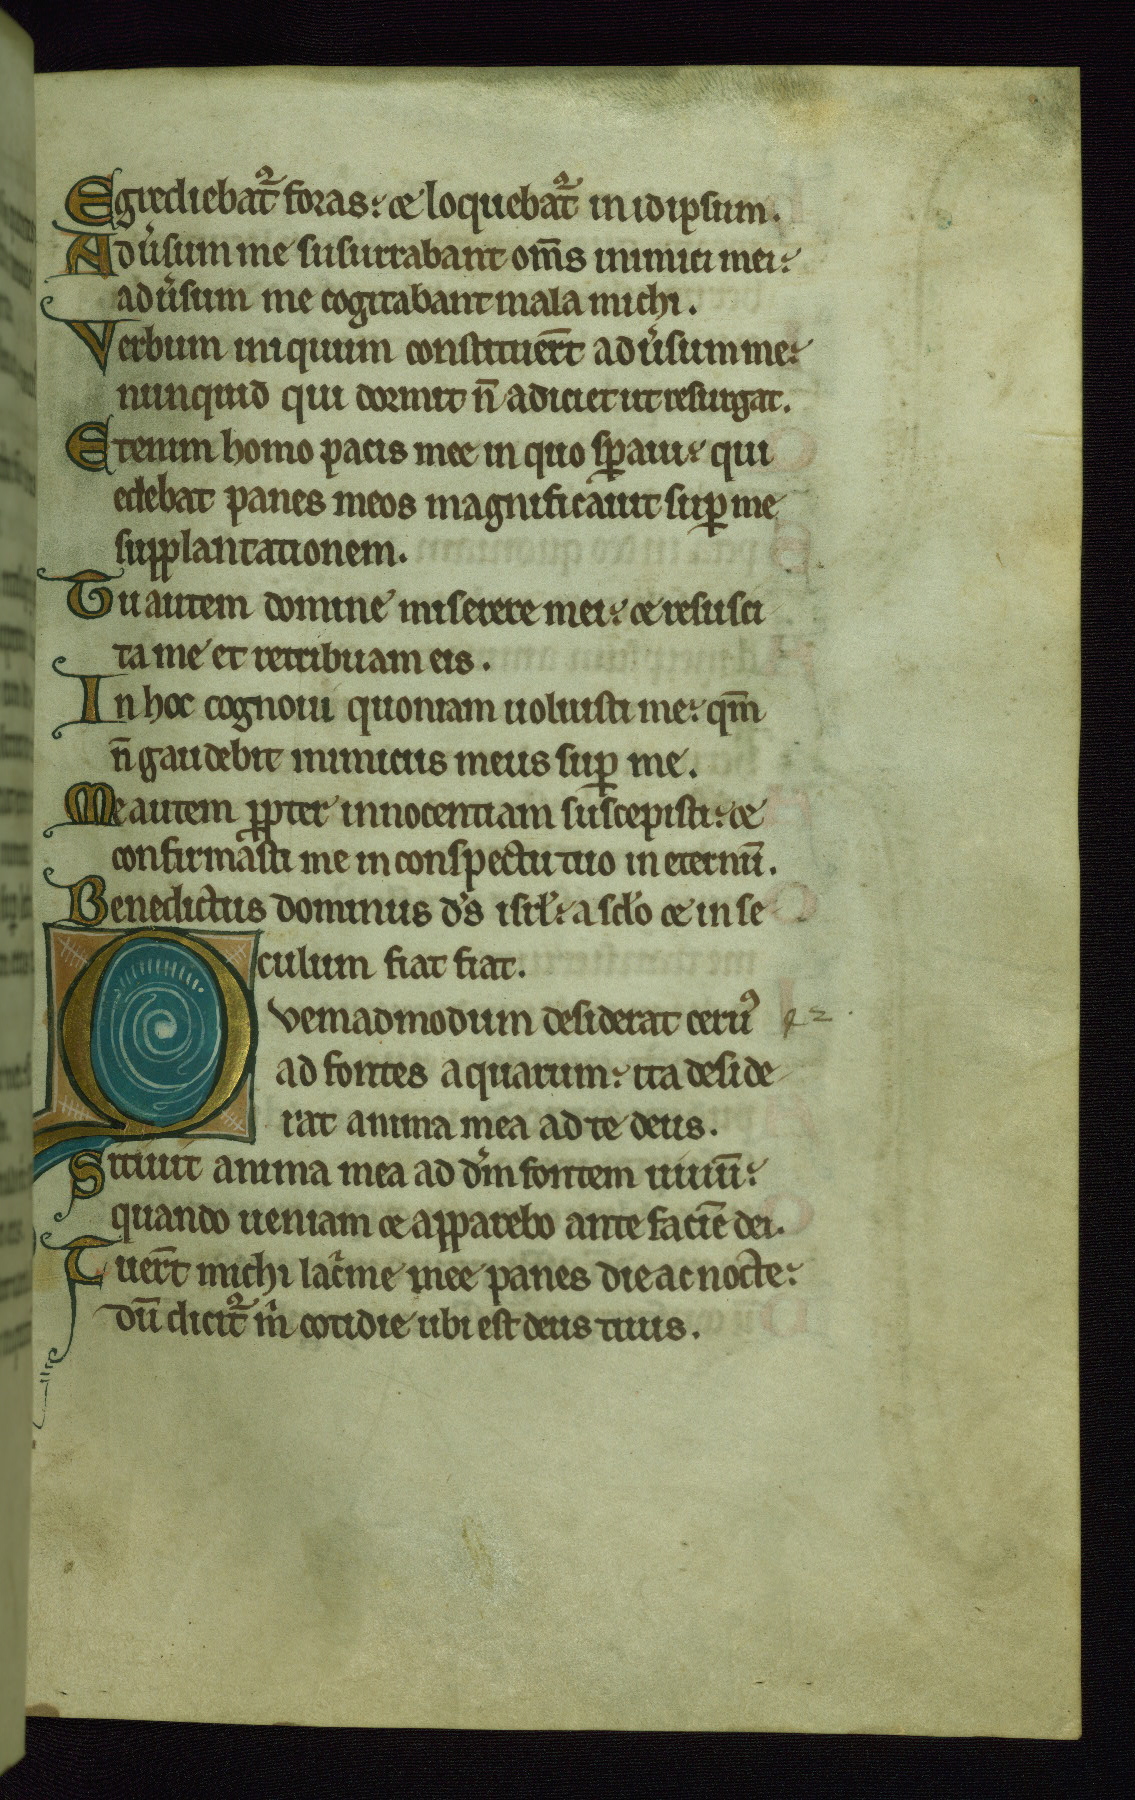 Egrediebat᷑ foras: ⁊ loquebat᷑ in idipsum.
Aduͥsum me susurrabant om̅s inimici mei:
aduͥsum me cogitabant mala michi.
Verbum iniquum constituer̅t aduͥsum me:
nunquid qui dormit n̅ adiciet ut resurgat.
Etenim homo pacis mee in quo sꝑaui: qui
edebat panes meos magnificauit suꝑ me
supplantationem.
Tu autem domine miserere mei: ⁊ resusci
ta me et retribuam eis.
In hoc cognoui quoniam uoluisti me: qm̅
n̅ gaudebit inimicus meus suꝑ me.
Me autem ꝓpter innocentiam suscepisti: ⁊
confirmasti me in conspectu tuo in eternu̅.
Benedictus dominus d̅s isrl̅: a sclo̅ ⁊ in se
culum fiat fiat.
Quemadmodum desiderat ceruꝰ
ad fontes aquarum: ita deside
rat anima mea ad te deus.
Sitiuit anima mea ad dm̅ fontem uiuu̅:
quando ueniam ⁊ apparebo ante facie̅ dei.
Fuer̅t michi lacͥme mee panes die ac nocte:
du̅ dicit᷑ mͥ cotidie ubi est deus tuus.